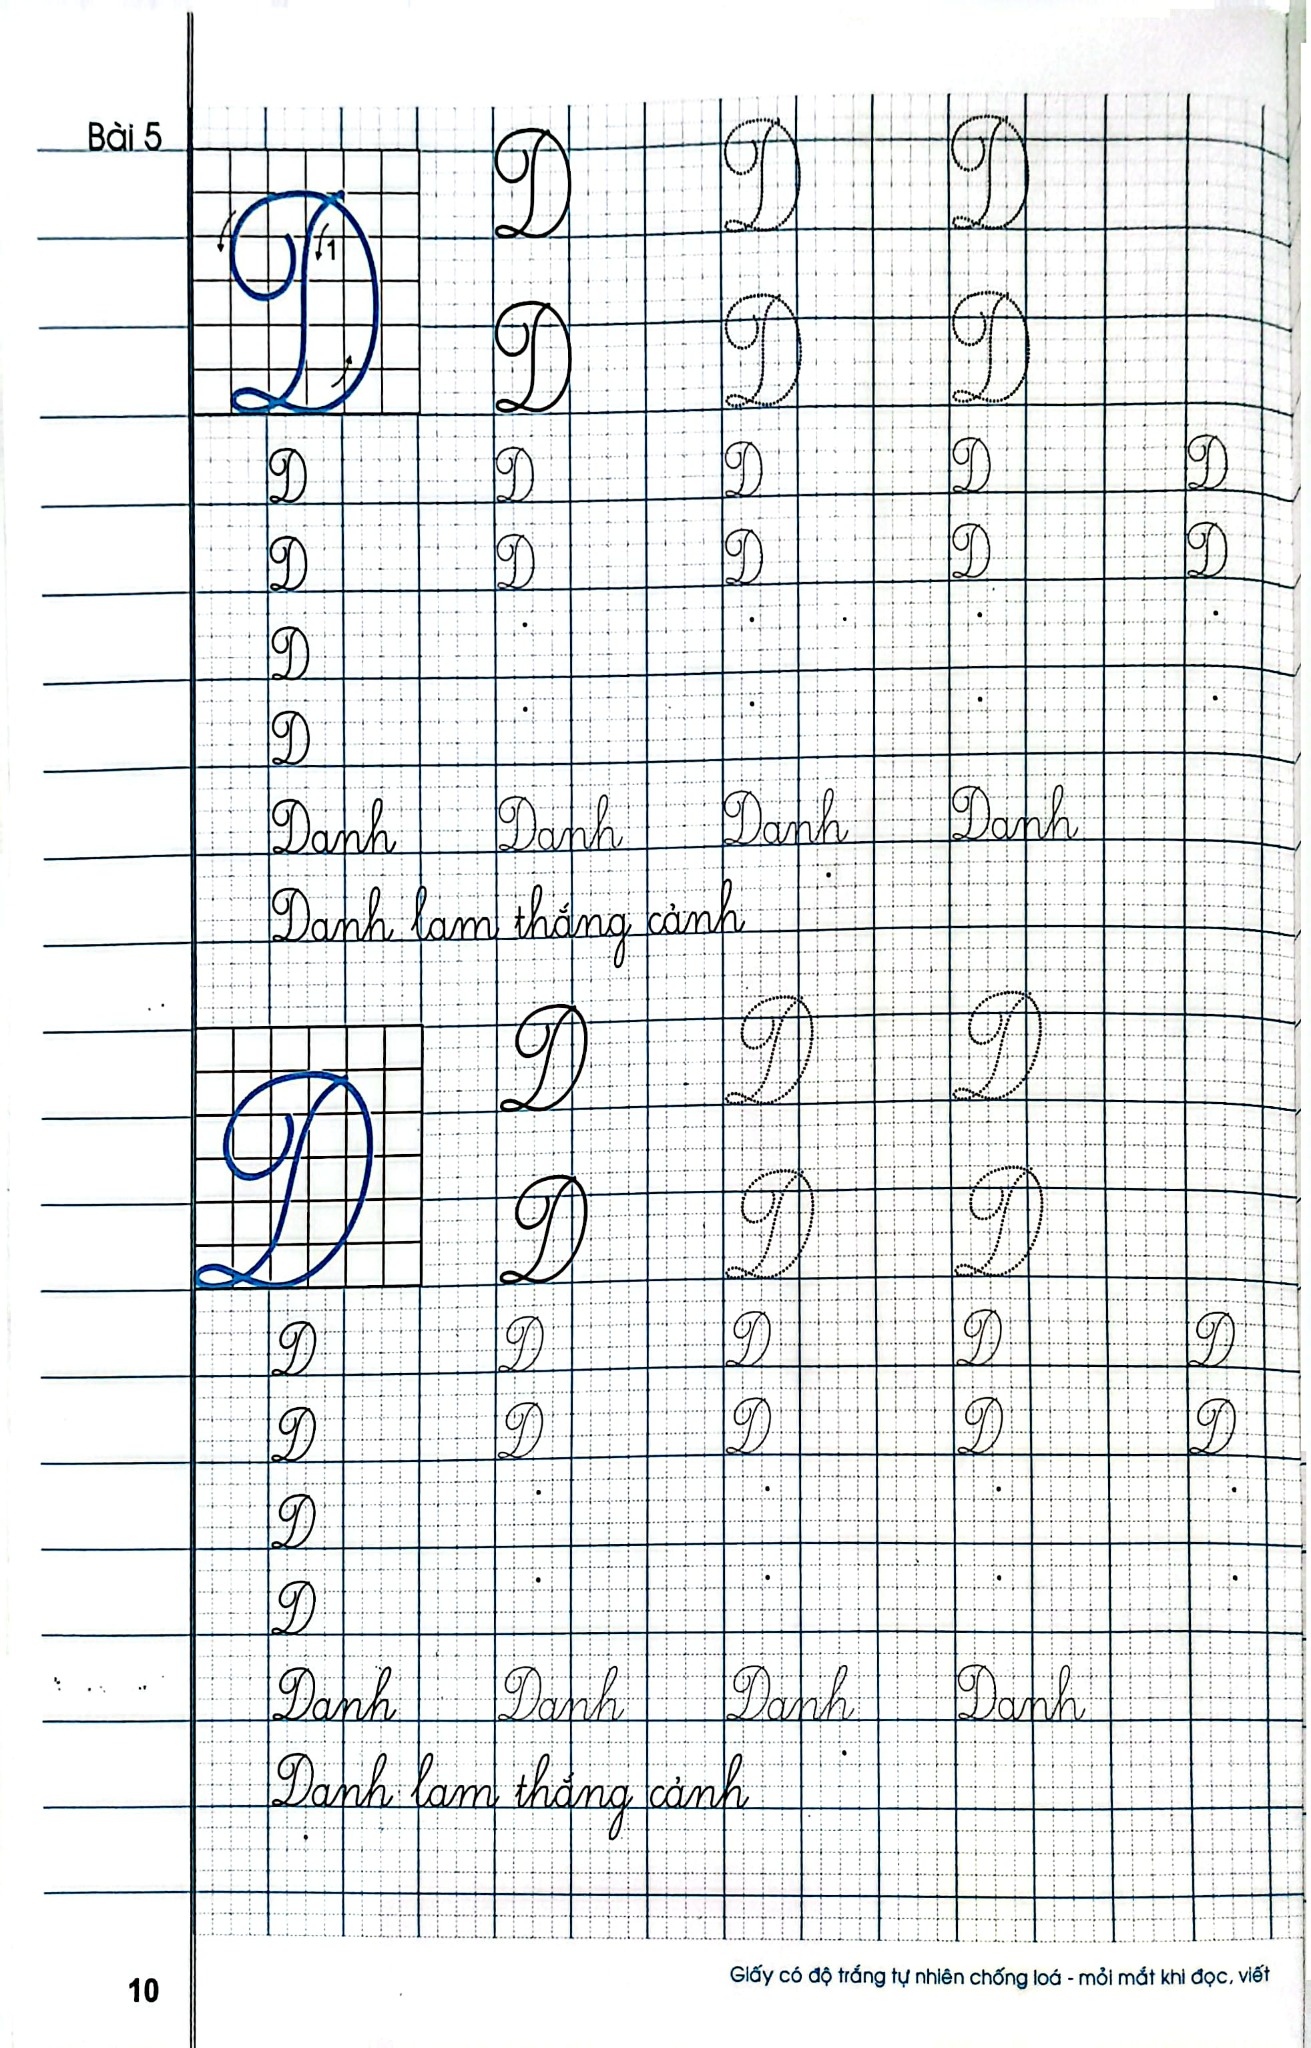 Bài 5
1
D D D
D D D
D D D D D
D D D D D
D
D
Danh Danh Danh Danh
Danh lam thắng cảnh
D D D D
D D D
D D D D D
D D D D D
D
D
Danh Danh Danh Danh
Danh lam thắng cảnh
10
Giấy có độ trắng tự nhiên chống loá - mỏi mắt khi đọc, viết